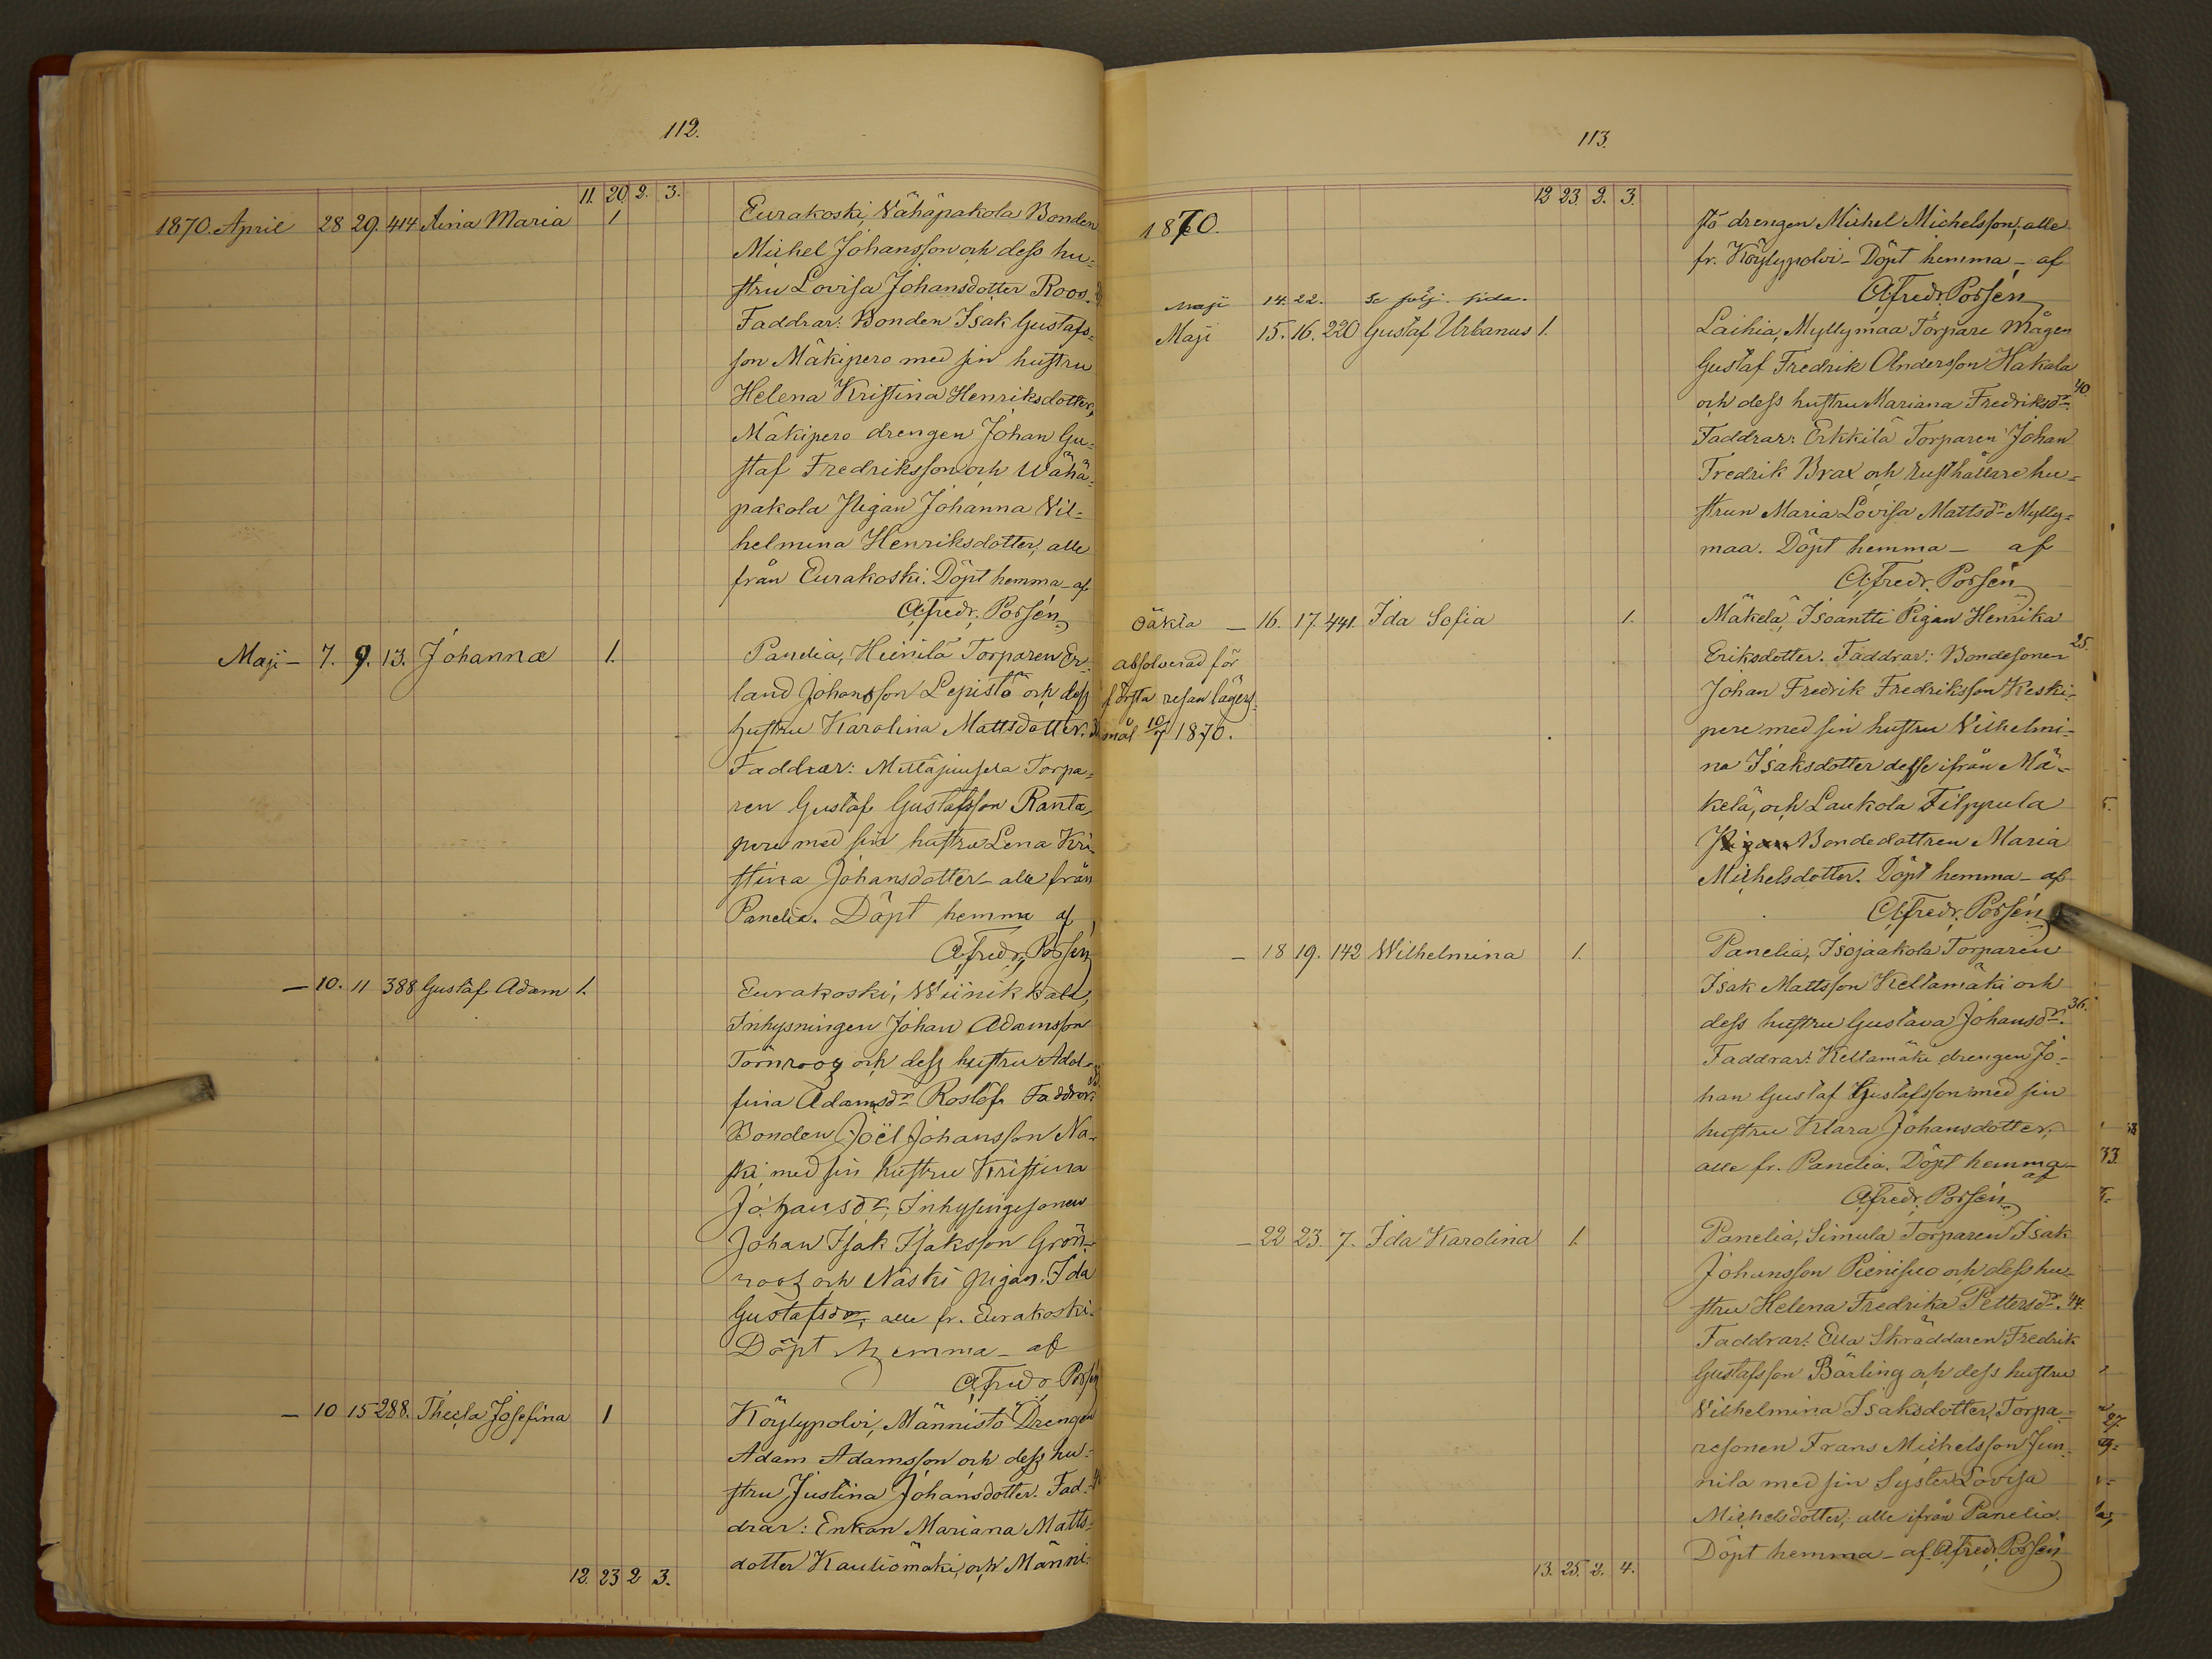 112.
11. 20 2. 3.
1870. April 28 29. 414 Aina Maria 1
Eurakoski, Vähäpakola Bonden
Michel Johansson och dess hu-
stru Lovisa Johansdotter Roos.
Faddrar: Bonden Isak Gustafs-
son Mäkipere med sin hustru
Helena Kristina Henriksdotter,
Mäkipere drengen Johan Gu-
staf Fredriksson och Wähä-
pakola Pigan Johanna Vil-
helmina Henriksdotter, alle
från Eurakoski. Döpt hemma – af
A. Fredr. Possén
Maji – 7. 9. 13. Johanna 1.
Panelia, Heinilä Torparen Er-
land Johansson Lepistö och dess
hustru Karolina Mattsdotter.
Faddrar: Torpa-
ren Gustaf Gustafsson Ranta-
pere med sin hustru Lena Kri-
stina Johansdotter – alle från
Panelia. Döpt hemma af
A. Fredr. Possén
– 10. 11 388 Gustaf Adam 1.
Eurakoski, Wiinikkala,
Inhysningen Johan Adamsson
Törnroos och dess hustru Adol-
fina Adamsdr Roslöf. Faddrar:
Bonden Joël Johansson Na-
ski med sin hustru Kristina
Johansdr, Inhysingesonen
Johan Isak Isaksson Grön-
roos och Näski pigan Ida
Gustafsdr, alle fr. Eurakoski.
Döpt hemma – af
A. Fredr Possén
– 10 15 288. Thecla Josefina 1
Köylypolvi, Männistö Drengen
Adam Adamsson och dess hu-
stru Justina Johansdotter. Fad-
drar: Enkan Mariana Matts-
dotter Kautiomäki, och Männi-
12. 23 2 3.
113.
12 23. 2. 3.
1870.
stö drengen Michel Michelsson, alle
fr. Köylypolvi – Döpt hemma – af
A. Fredr. Possén
Maji 14. 22. Se följ. sida.
Maji 15. 16. 220 Gustaf Urbanus 1.
Laihia, Myllymaa Torpare Mågen
Gustaf Fredrik Andersson Hakala
och dess hustru Mariana Fredriksdr. 40.
Faddrar: Erkkilä Torparen Johan
Fredrik Brax och rusthållare hu-
strun Maria Lovisa Mattsdr Mylly-
maa. Döpt hemma – af
A. Fredr. Possén
Oäkta – 16. 17. 441. Ida Sofia 1.
absolverad för
första resan lägers-
mål 10/7 1870.
Mäkelä, Isoantti Pigan Henrika
Eriksdotter. Faddrar: Bondesonen 25.
Johan Fredrik Fredriksson Keski-
pere med sin hustru Vilhelmi-
na Isaksdotter desse ifrån Mä-
kelä, och Laukola Filppula
Pigan Bondedottren Maria
Michelsdotter. Döpt hemma – af
A. Fredr. Possén
– 18 19. 142 Wilhelmina 1.
Panelia, Isojaakola Torparen
Isak Mattsson Kellamäki och
dess hustru Gustava Johansdr. 36.
Faddrar: Kellamäki drengen Jo-
han Gustaf Gustafsson med sin
hustru Klara Johansdotter,
alle fr. Panelia. Döpt hemma – af
A. Fredr. Possén
– 22 23. 7. Ida Karolina 1.
Panelia, Simula Torparen Isak
Johansson Pienisuo och dess hu-
stru Helena Fredrika Pettersdr. 44.
Faddrar: Ella Skräddaren Fredrik
Gustafsson Bärling och dess hustru
Vilhelmina Isaksdotter, Torpa-
resonen Frans Michelsson Jun-
nila med sin Syster Lovisa
Michelsdotter, alle ifrån Panelia.
Döpt hemma – af A. Fredr. Possén
13. 25. 2. 4.
33.
27.